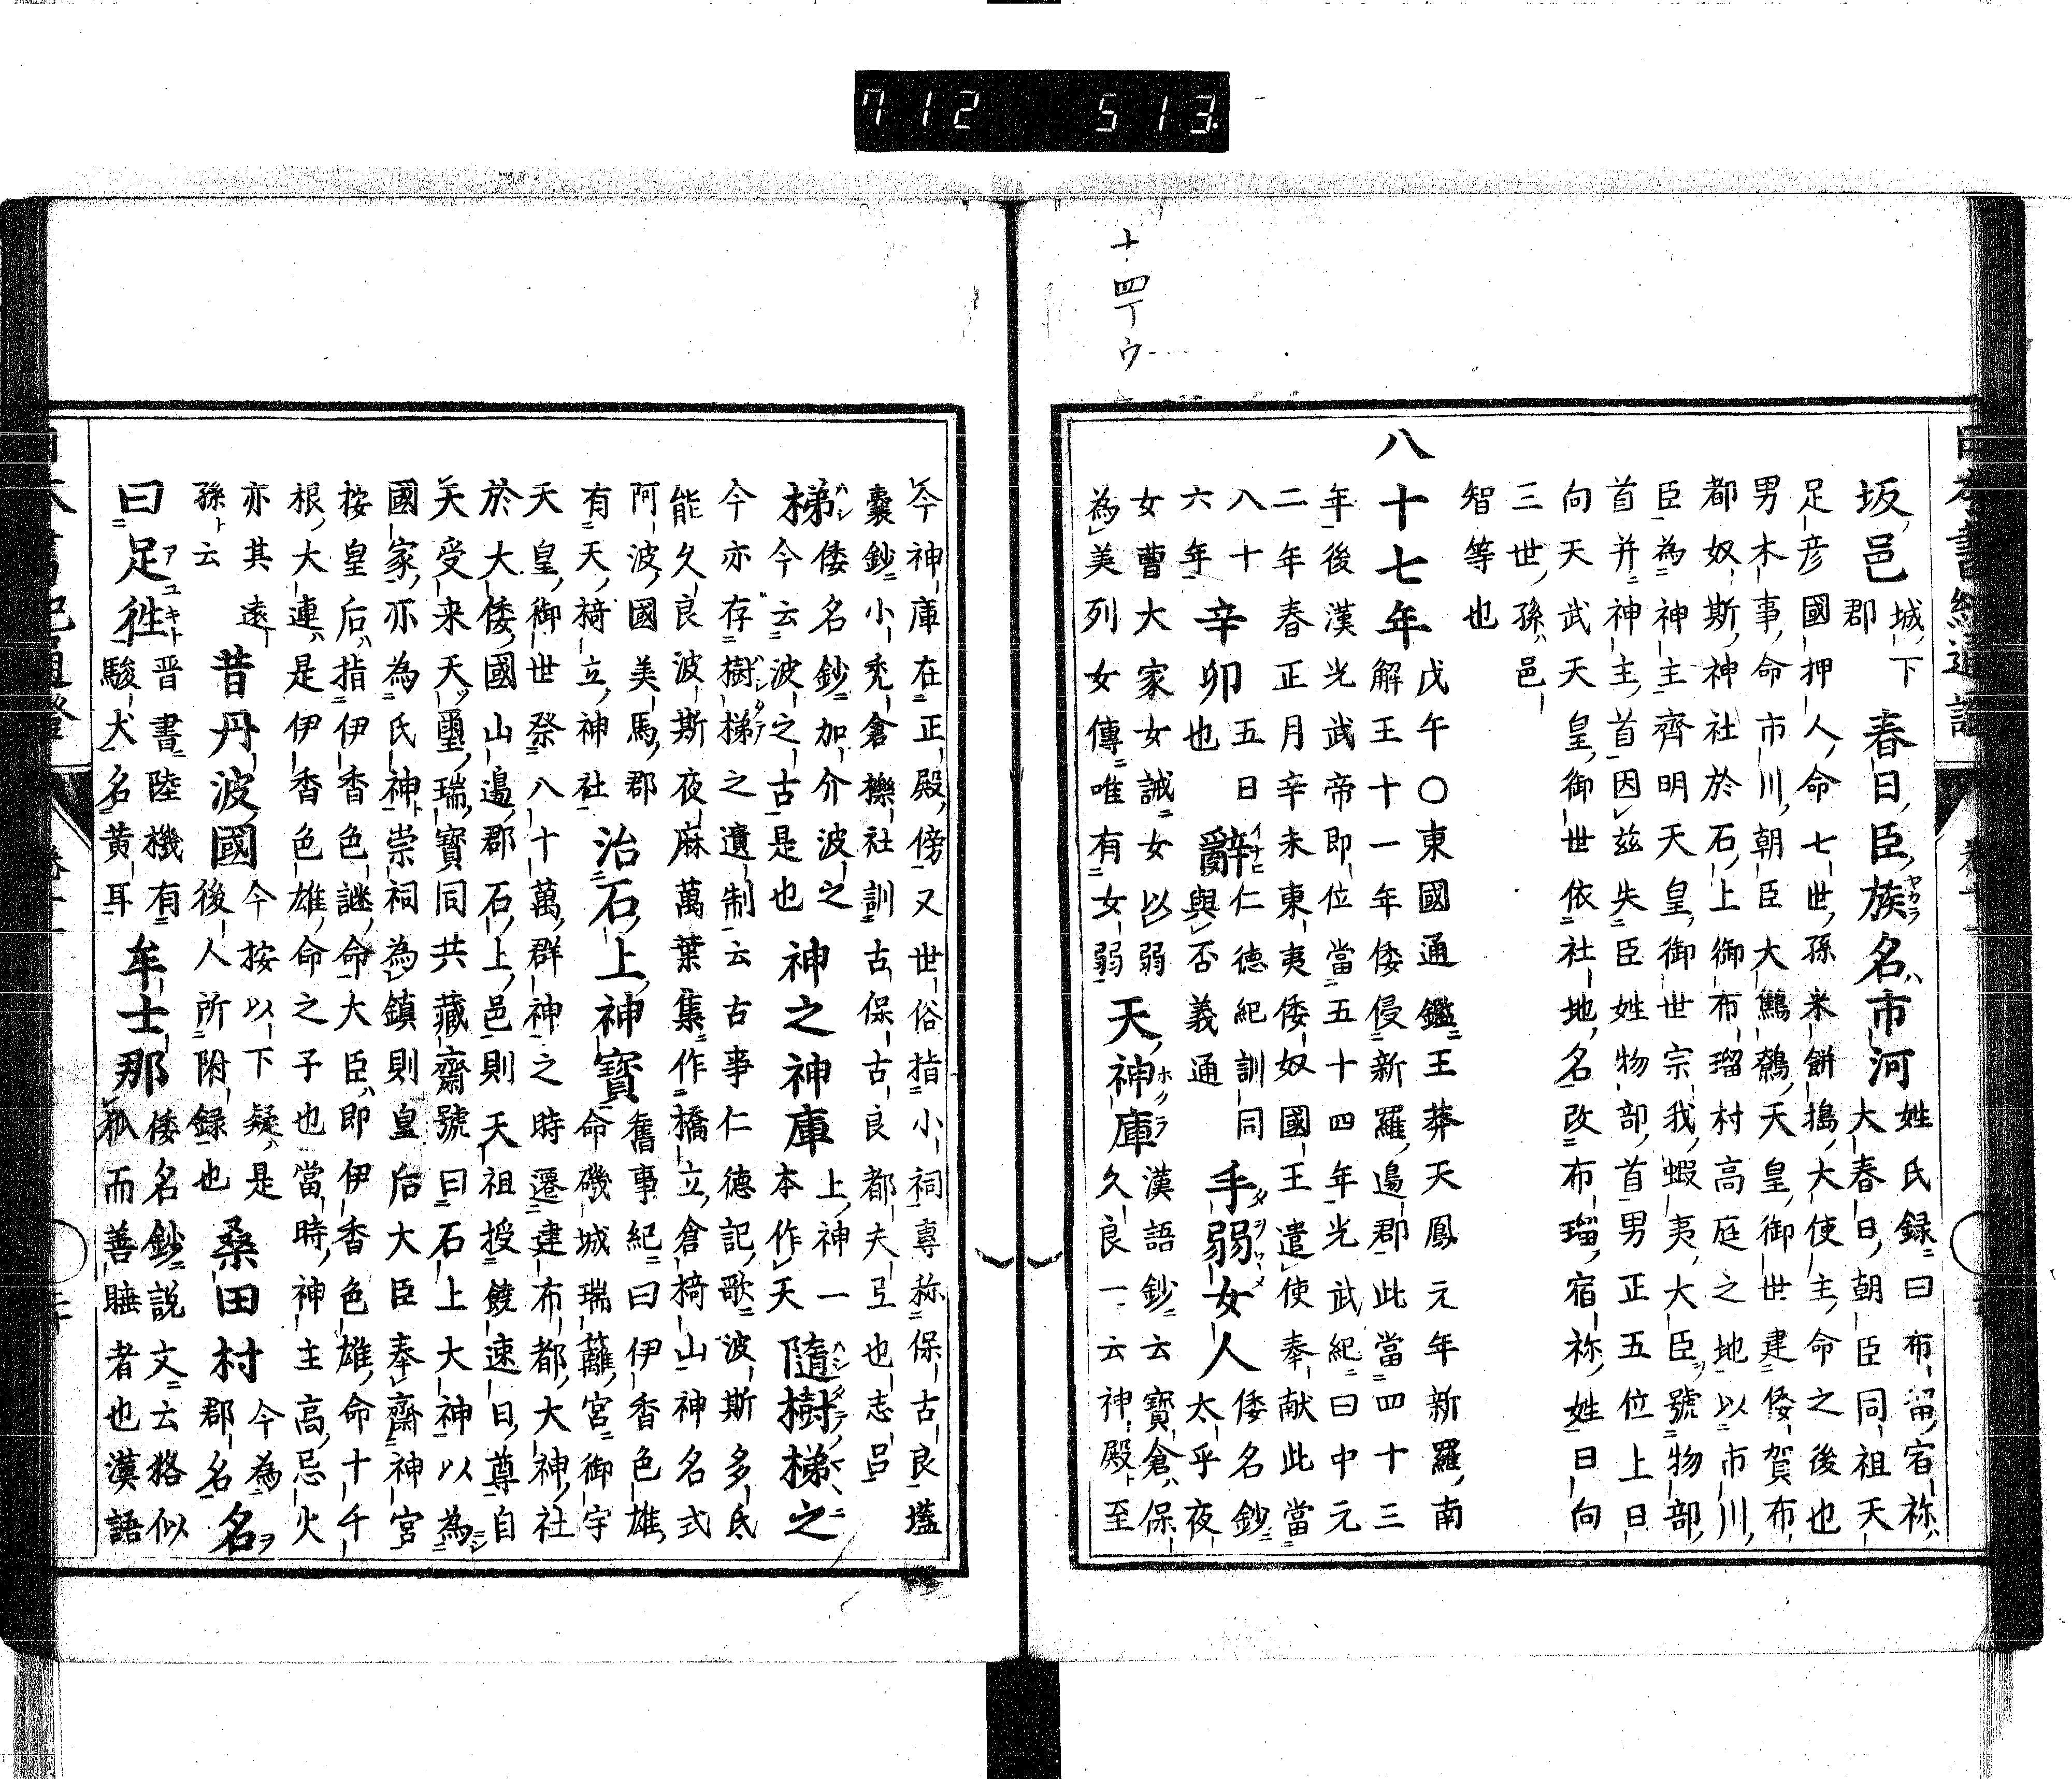 712 513
十四丁ウ
坂邑
城下
郡
春日臣族名市河
姓氏録曰布留宿祢
大春日朝臣同祖天
足彦國押人命七世孫米餅搗大使主命之後也
男木事命市川朝臣大鷦鷯天皇御世建倭賀布
都奴斯神社於石上御布瑠村高庭之地以市川
臣為神主齊明天皇御世宗我蝦夷大臣號物部
首并神主首因茲失臣姓物部首男正五位上日
向天武天皇御世依社地名改布瑠宿祢姓日向
三世孫邑
智等也
八十七年
戊午〇東國通鑑王莽天鳳元年新羅南
解王十一年倭侵新羅邊郡此當四十三
年後漢光武帝即位當五十四年光武紀曰中元
二年春正月辛未東夷倭奴國王遣使奉献此當
八十
六年
辛卯
五日
也
辭
仁德紀訓同
與否義通
手弱女人
倭名鈔
太乎夜
女曹大家女誡女以弱
為美列女傳唯有女弱
天神庫
漢語鈔云寶倉保
久良一云神殿至
今神庫在正殿傍又世俗指小祠專称保古良壒
囊鈔小禿倉櫟社訓古保古良都夫也志呂
梯
倭名鈔加介波之
今云波之古是也
神之神庫
上神一
本作天
隨樹梯之
今亦存樹梯之遺制云古事仁德記歌波斯多氐
能久良波斯夜麻萬葉集作橋立倉椅山神名式
阿波國美馬郡
有天椅立神社
治石上神寶
舊事紀曰伊香色雄
命磯城瑞籬宮御宇
天皇御世祭八十萬群神之時遷建布都大神社
於大倭國山邊郡石上邑則天祖授饒速日尊自
天受来天璽瑞寶同共藏齋號曰石上大神以為
國家亦為氏神崇祠為鎮則皇后大臣奉齋神宮
按皇后指伊香色謎命大臣即伊香色雄命十千
根大連是伊香色雄命之子也當時神主高忌火
亦其遠
孫云
昔丹波國
今按以下疑是
後人所附録也
桑田村
今為
郡名
名
曰足往
晋書陸機有
駿犬名黄耳
牟士那
倭名鈔説文云狢似
狐而善睡者也漢語